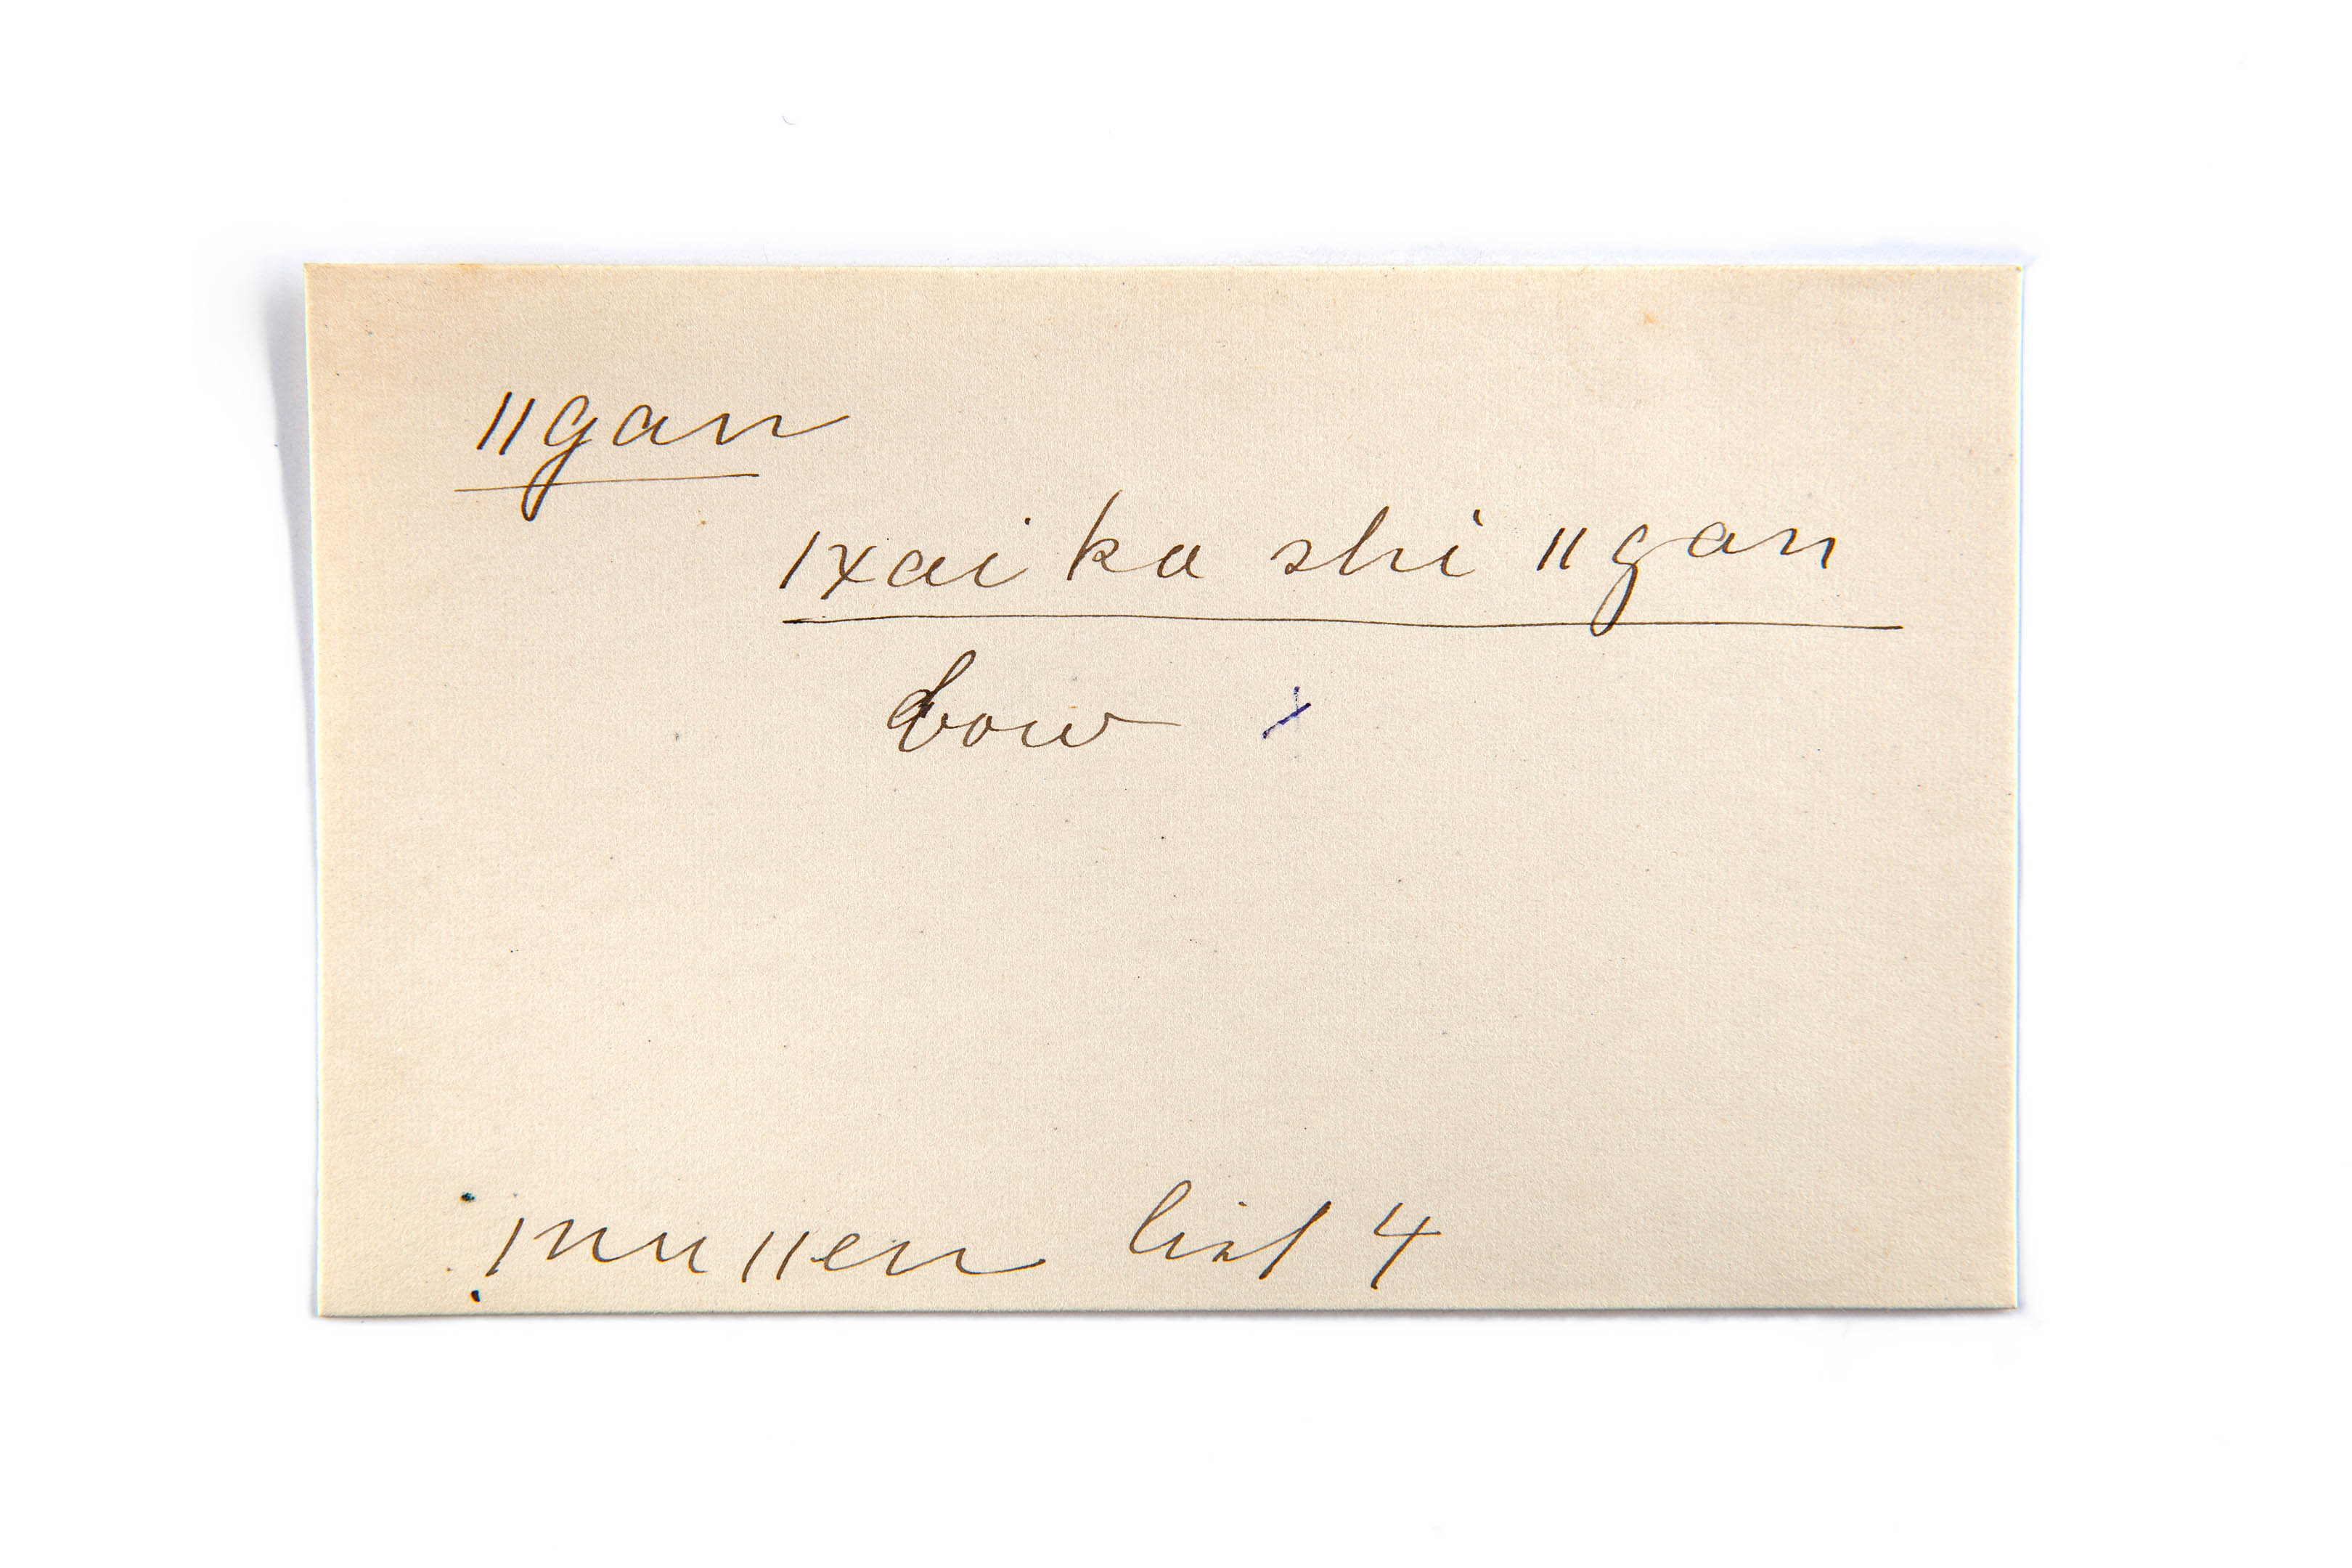 ǁgan
ǀxai ka shi ǁgan
bow x
ǀnu ǁen list 4